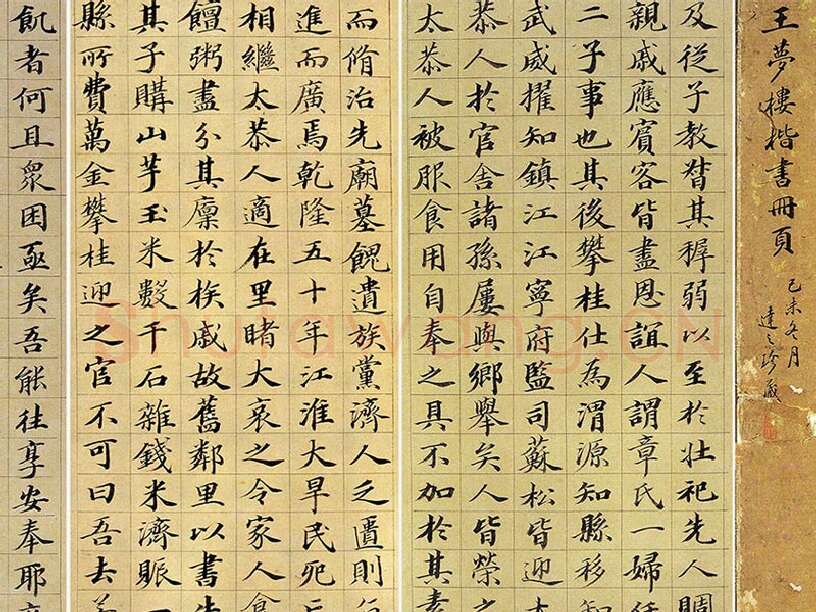 王夢樓楷書冊頁
己未冬月
達之珍藏
及從子教督其稺弱以至於壯祀先人賙
親戚應賓客皆盡恩誼人謂章氏一婦任
二子事也其後攀桂仕為渭源知縣移知
武威擢知鎮江江寧府監司蘇松皆迎太
恭人於官舍諸孫屢與鄉舉矣人皆榮之
太恭人被服食用自奉之具不加於其素
而脩治先廟墓餽遺族黨濟人之匱則
進而廣焉乾隆五十年江淮大旱民死
相繼太恭人適在里睹大哀之令家人食
饘粥盡分其廩於族戚故舊鄰里以書告
其子購山芋玉米數千石雜錢米濟賑一
縣所費萬金攀桂迎之官不可曰吾去
飢者何且衆困亟矣吾能往享安奉耶
Shufawang.CN